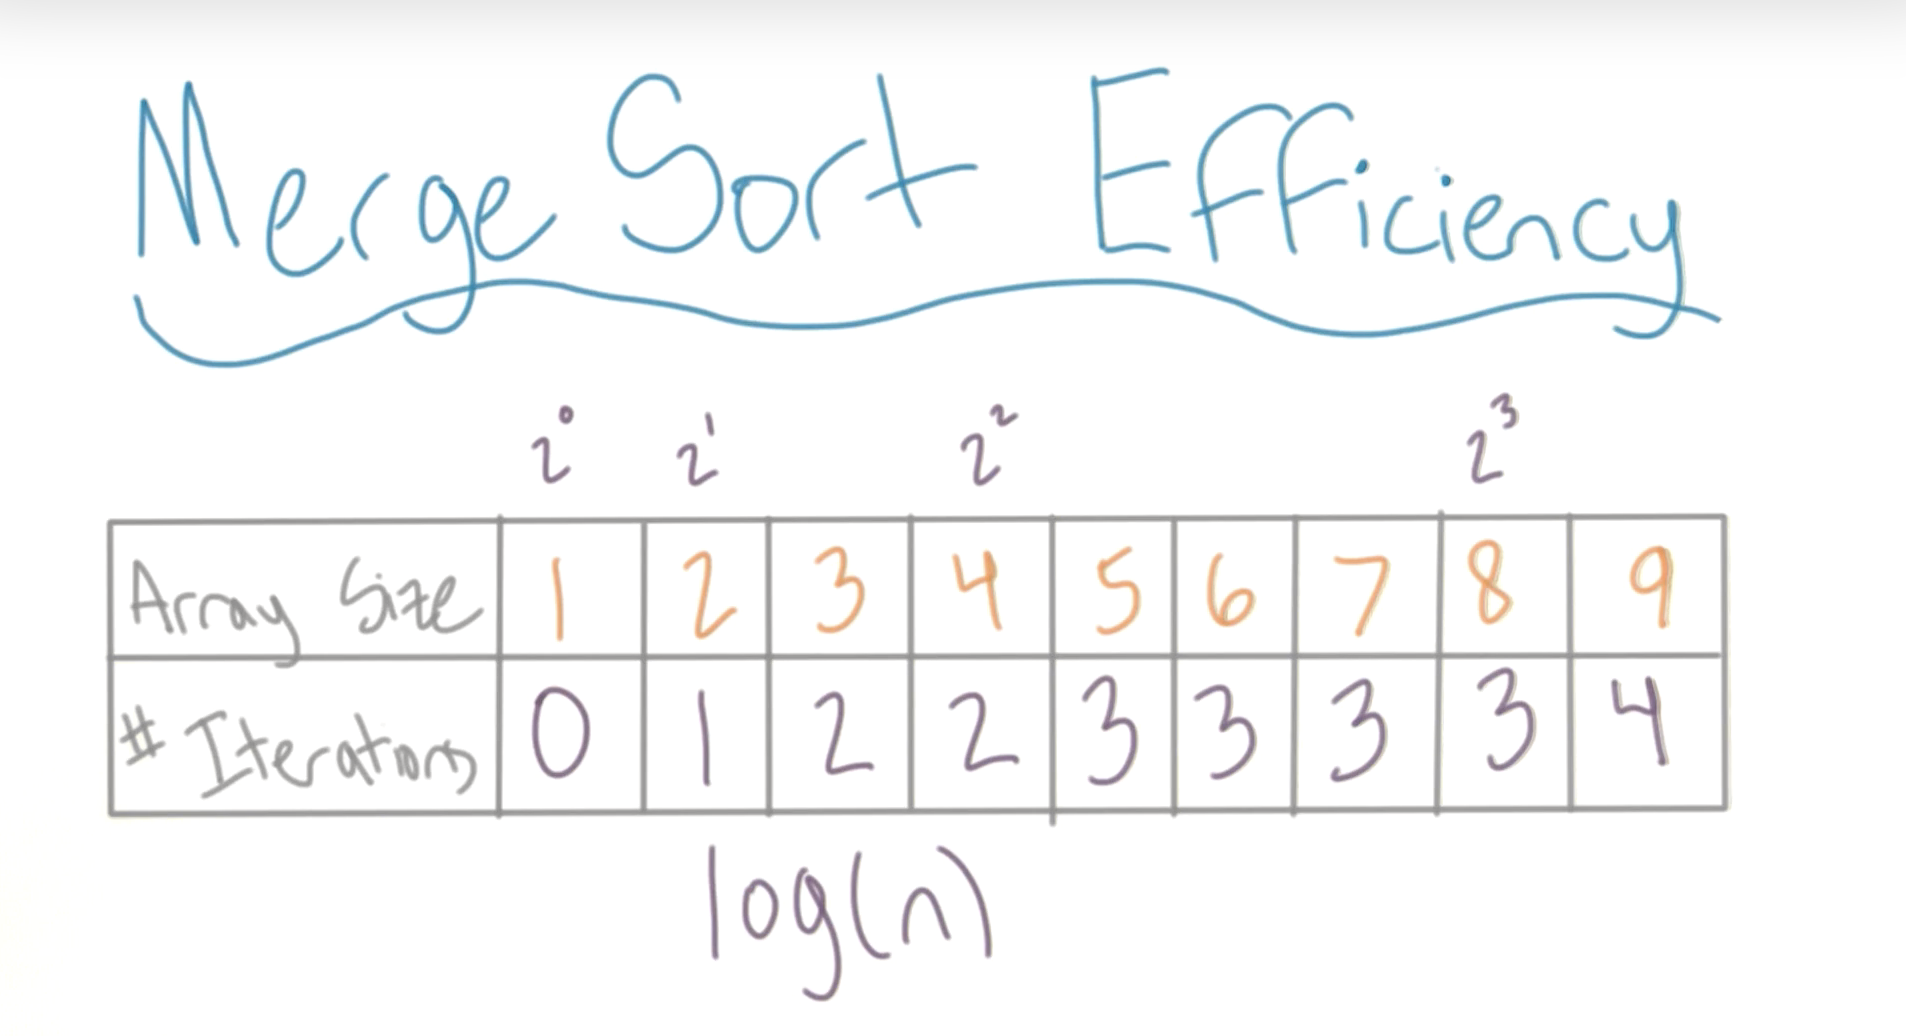 Merge Sort Efficiency
2⁰ 2¹ 2² 2³
Array Size 1 2 3 4 5 6 7 8 9
# Iterations 0 1 2 2 3 3 3 3 4
log(n)